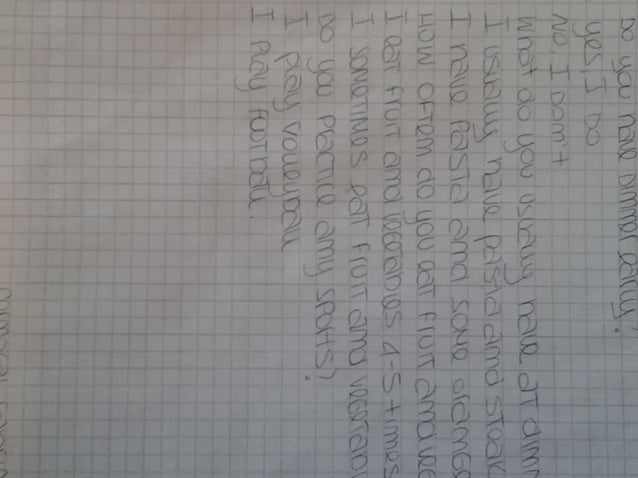 DO you have dinner early?
yes, I DO
NO I DON't
What do you usually have at dinn
I usually have pasta and steak
I have pasta and some orange
HOW OFTEN do you eat fruit and ve
I eat fruit and vegetables 4-5 times
I sometimes eat fruit and vegetabl
DO you practice any sports?
I play volleyball
I play football.